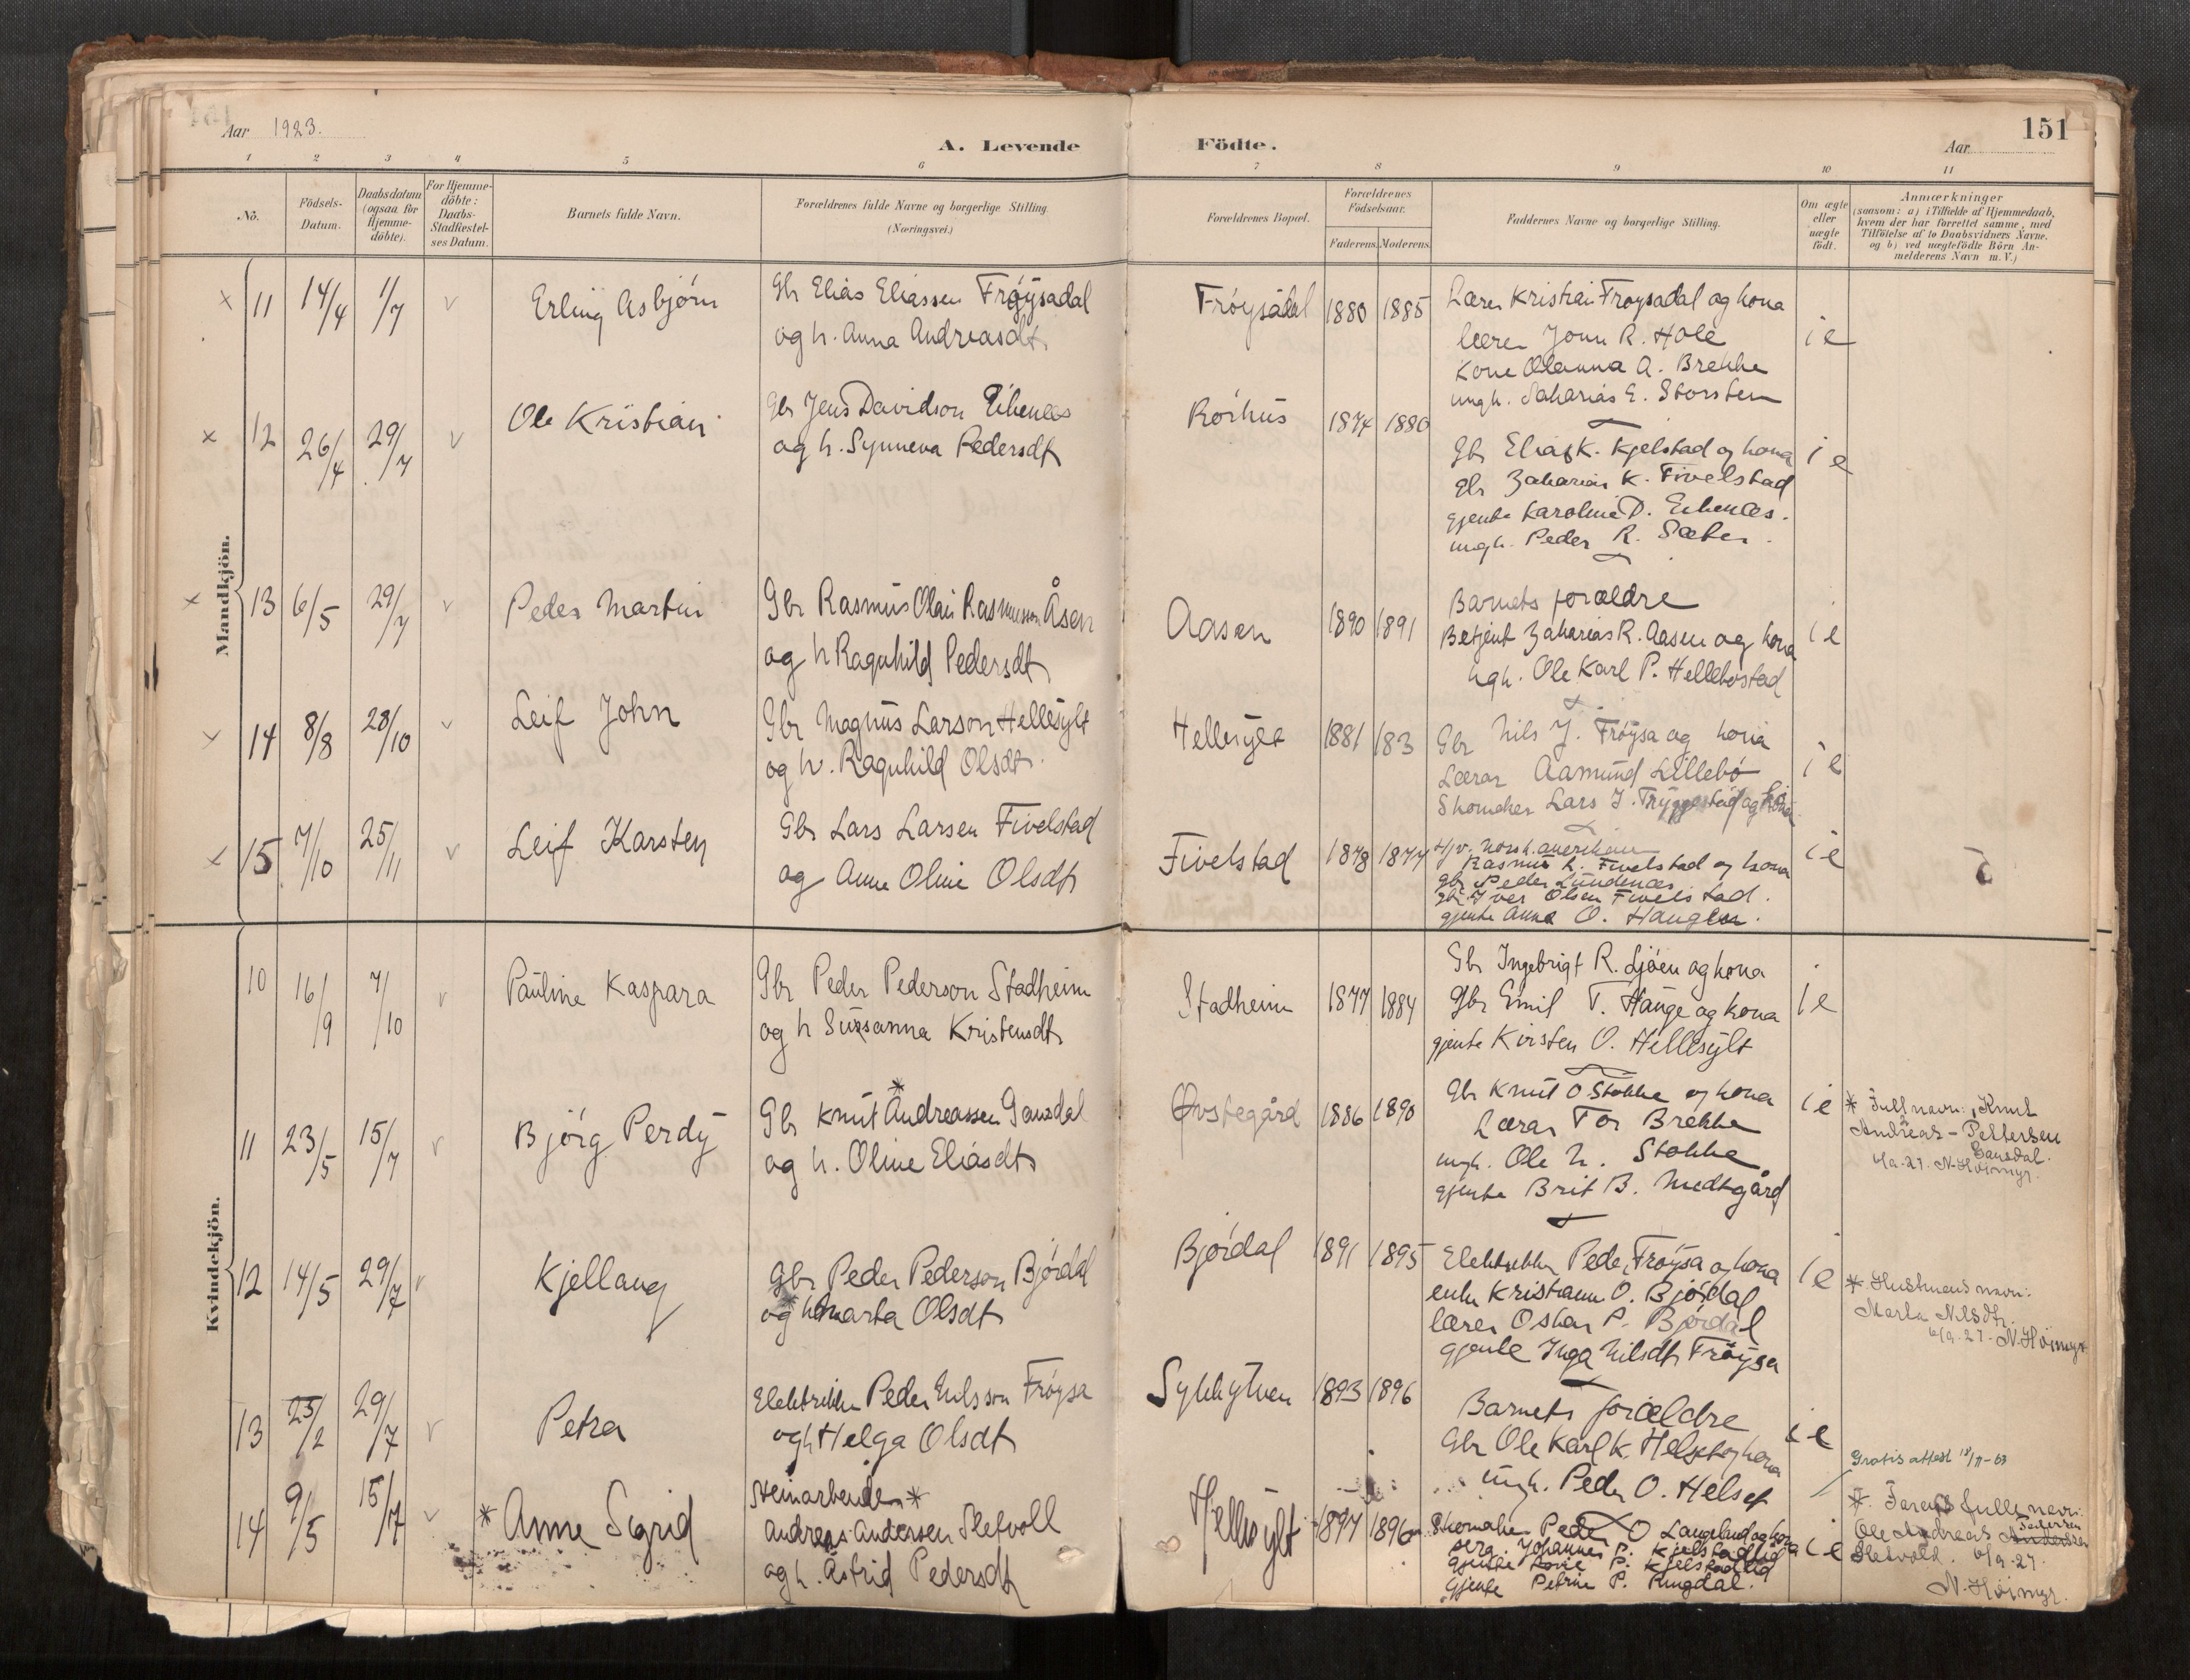 Aar 1923.
A. Levende Födte.
Aar
151
1 2 3 4 5 6 7 8 9 10 11
No.
Födsels-
Datum.
Daabsdatum
(ogsaa for
Hjemme-
döbte).
For Hjemme-
döbte:
Daabs-
Stadfæstel-
ses Datum.
Barnets fulde Navn.
Forældrenes fulde Navne og borgerlige Stilling
(Næringsvei.)
Forældrenes Bopæl.
Forældrenes
Födselsaar.
Faderens. Moderens.
Faddernes Navne og borgerlige Stilling.
Om ægte
eller
uægte
födt.
Anmærkninger
(saasom: a) i Tilfælde af Hjemmedaab,
hvem der har forrettet samme, med
Tilföielse af to Daabsvidners Navne.
og b) ved uægtefödte Börn An-
melderens Navn m. V.)
Mandkjön.
x 11 14/4 1/7 v Erling Asbjörn
Gbr Elias Eliassen Fröysadal
og h. Anna Andreasdtr
Fröysadal 1880 1885
Lærer Kristian Froysadal og kona
lærer John R. Hole
Kone Olanna A. Brekke
ungk. Saharias E. Storsten
i e
x 12 26/4 29/7 v Ole Kristian
Gbr Jens Davidson Eikenæs
og h. Synneva Pedersdtr
Rörhus 1874 1880
Gbr Elias K. Kjelstad og kona
Gbr Zakarias K. Fivelstad
gjente Karoline D. Eikenæs.
ungk. Peder R. Sæter.
i e
x 13 6/5 29/7 v Peder Martin
Gbr Rasmus Olai Rasmusson Åsen
og h Ragnhild Pedersdtr
Aasen 1890 1891
Barnets foraeldre
Betjent Zakarias R. Aasen og kona
ugk. Ole Karl P. Hellebostad
i e
x 14 8/8 28/10 v Leif John
Gbr Magnus Larson Hellesylt
og h. Ragnhild Olsdtr.
Hellesylt 1881 183
Gbr Nils J. Fröysa og kona
Lærar Aamund Lillebö
Skomaker Lars J. Tryggestad og kona
i e
x 15 7/10 25/11 v Leif Karsten
Gbr Lars Larsen Fivelstad
og Anne Oline Olsdtr
Fivelstad 1878 1877
Hjv. norsk amerikan
Rasmus L. Fivelstad og kona
gbr Peder Lundenæs
gbr Iver Olsen Fivelstad.
gjente Anna O. Haugen.
i e
Kvindekjön.
10 16/9 7/10 v Pauline Kaspara
Gbr Peder Pederson Stadheim
og h Sussanna Kristensdtr
Stadheim 1877 1884
Gbr Ingebrigt R. Ljöen og kona
Gbr Emil T. Hauge og kona
gjente Kirsten O. Hellesylt
i e
11 23/5 15/7 v Björg Perdy
*
Gbr Knut Andreassen Gausdal
og h. Oline Eliasdtr
Øvstegård 1886 1890
Gbr Knut O Stokke og kona
Lærar Tor Brekke
ungk. Ole N. Stokke
gjente Brit B. Medtgård
i e
* Fullt navn: Knut
Andreas - Pettersen
Gausdal.
6/9-27. N. Höimyr.
12 14/5 29/7 v Kjellaug
Gbr Peder Pederson Björdal
og h * Marta Olsdtr
Björdal 1891 1895
Elektriker Peder Fröysa og kona
enke Kristianne O. Björdal
lærer Oskar P. Björdal
gjente Inga Nilsdtr Fröysa
i e
* Hustruens navn:
Marta Nilsdtr.
6/9-27 - N. Höimyr.
13 25/2 29/7 v Petra
Elektriker Peder Nilsson Fröysa
og h Helga Olsdtr
Sykkylven 1893 1896
Barnets forældre
Gbr Ole Karl K. Helset og kona
ungk. Peder O. Helset
i e
Gratis attest 18/11-63
14 9/5 15/7 v * Anne Sigrid
Steinarbeider *
Andreas Andersen Sletvoll
og h. Astrid Pedersdtr
Hellesylt 1897 1896
Skomaker Peder O Langelund og kona
Johannes P. Kjelstadlid
gjente P. Kjelstadlid
Gjente Petrine P. Ringdal.
i e
* Farens fulle navn:
Ole Andreas Andersen Pedersen
Sletvold. 6/9-27.
N. Höimyr.